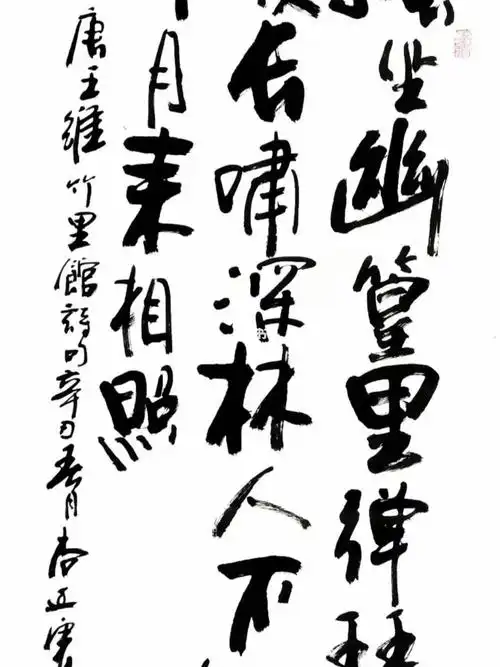 坐幽篁里弹
长嘯深林人不
月来相照
唐王維竹里館詩句辛丑春月